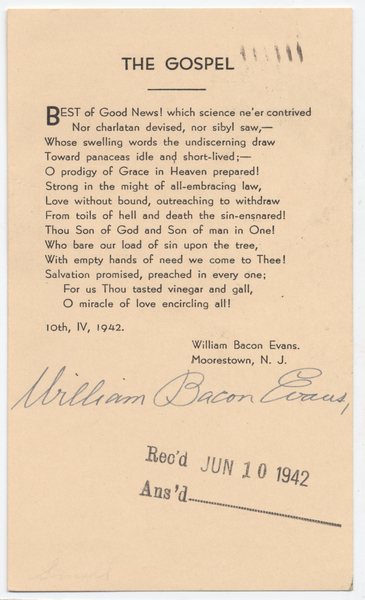 THE GOSPEL
BEST of Good News! which science ne'er contrived
Nor charlatan devised, nor sibyl saw,—
Whose swelling words the undiscerning draw
Toward panaceas idle and short-lived;—
O prodigy of Grace in Heaven prepared!
Strong in the might of all-embracing law,
Love without bound, outreaching to withdraw
From toils of hell and death the sin-ensnared!
Thou Son of God and Son of man in One!
Who bare our load of sin upon the tree,
With empty hands of need we come to Thee!
Salvation promised, preached in every one;
For us Thou tasted vinegar and gall,
O miracle of love encircling all!
10th, IV, 1942.
William Bacon Evans.
Moorestown, N. J.
William Bacon Evans,
Rec'd JUN 10 1942
Ans'd